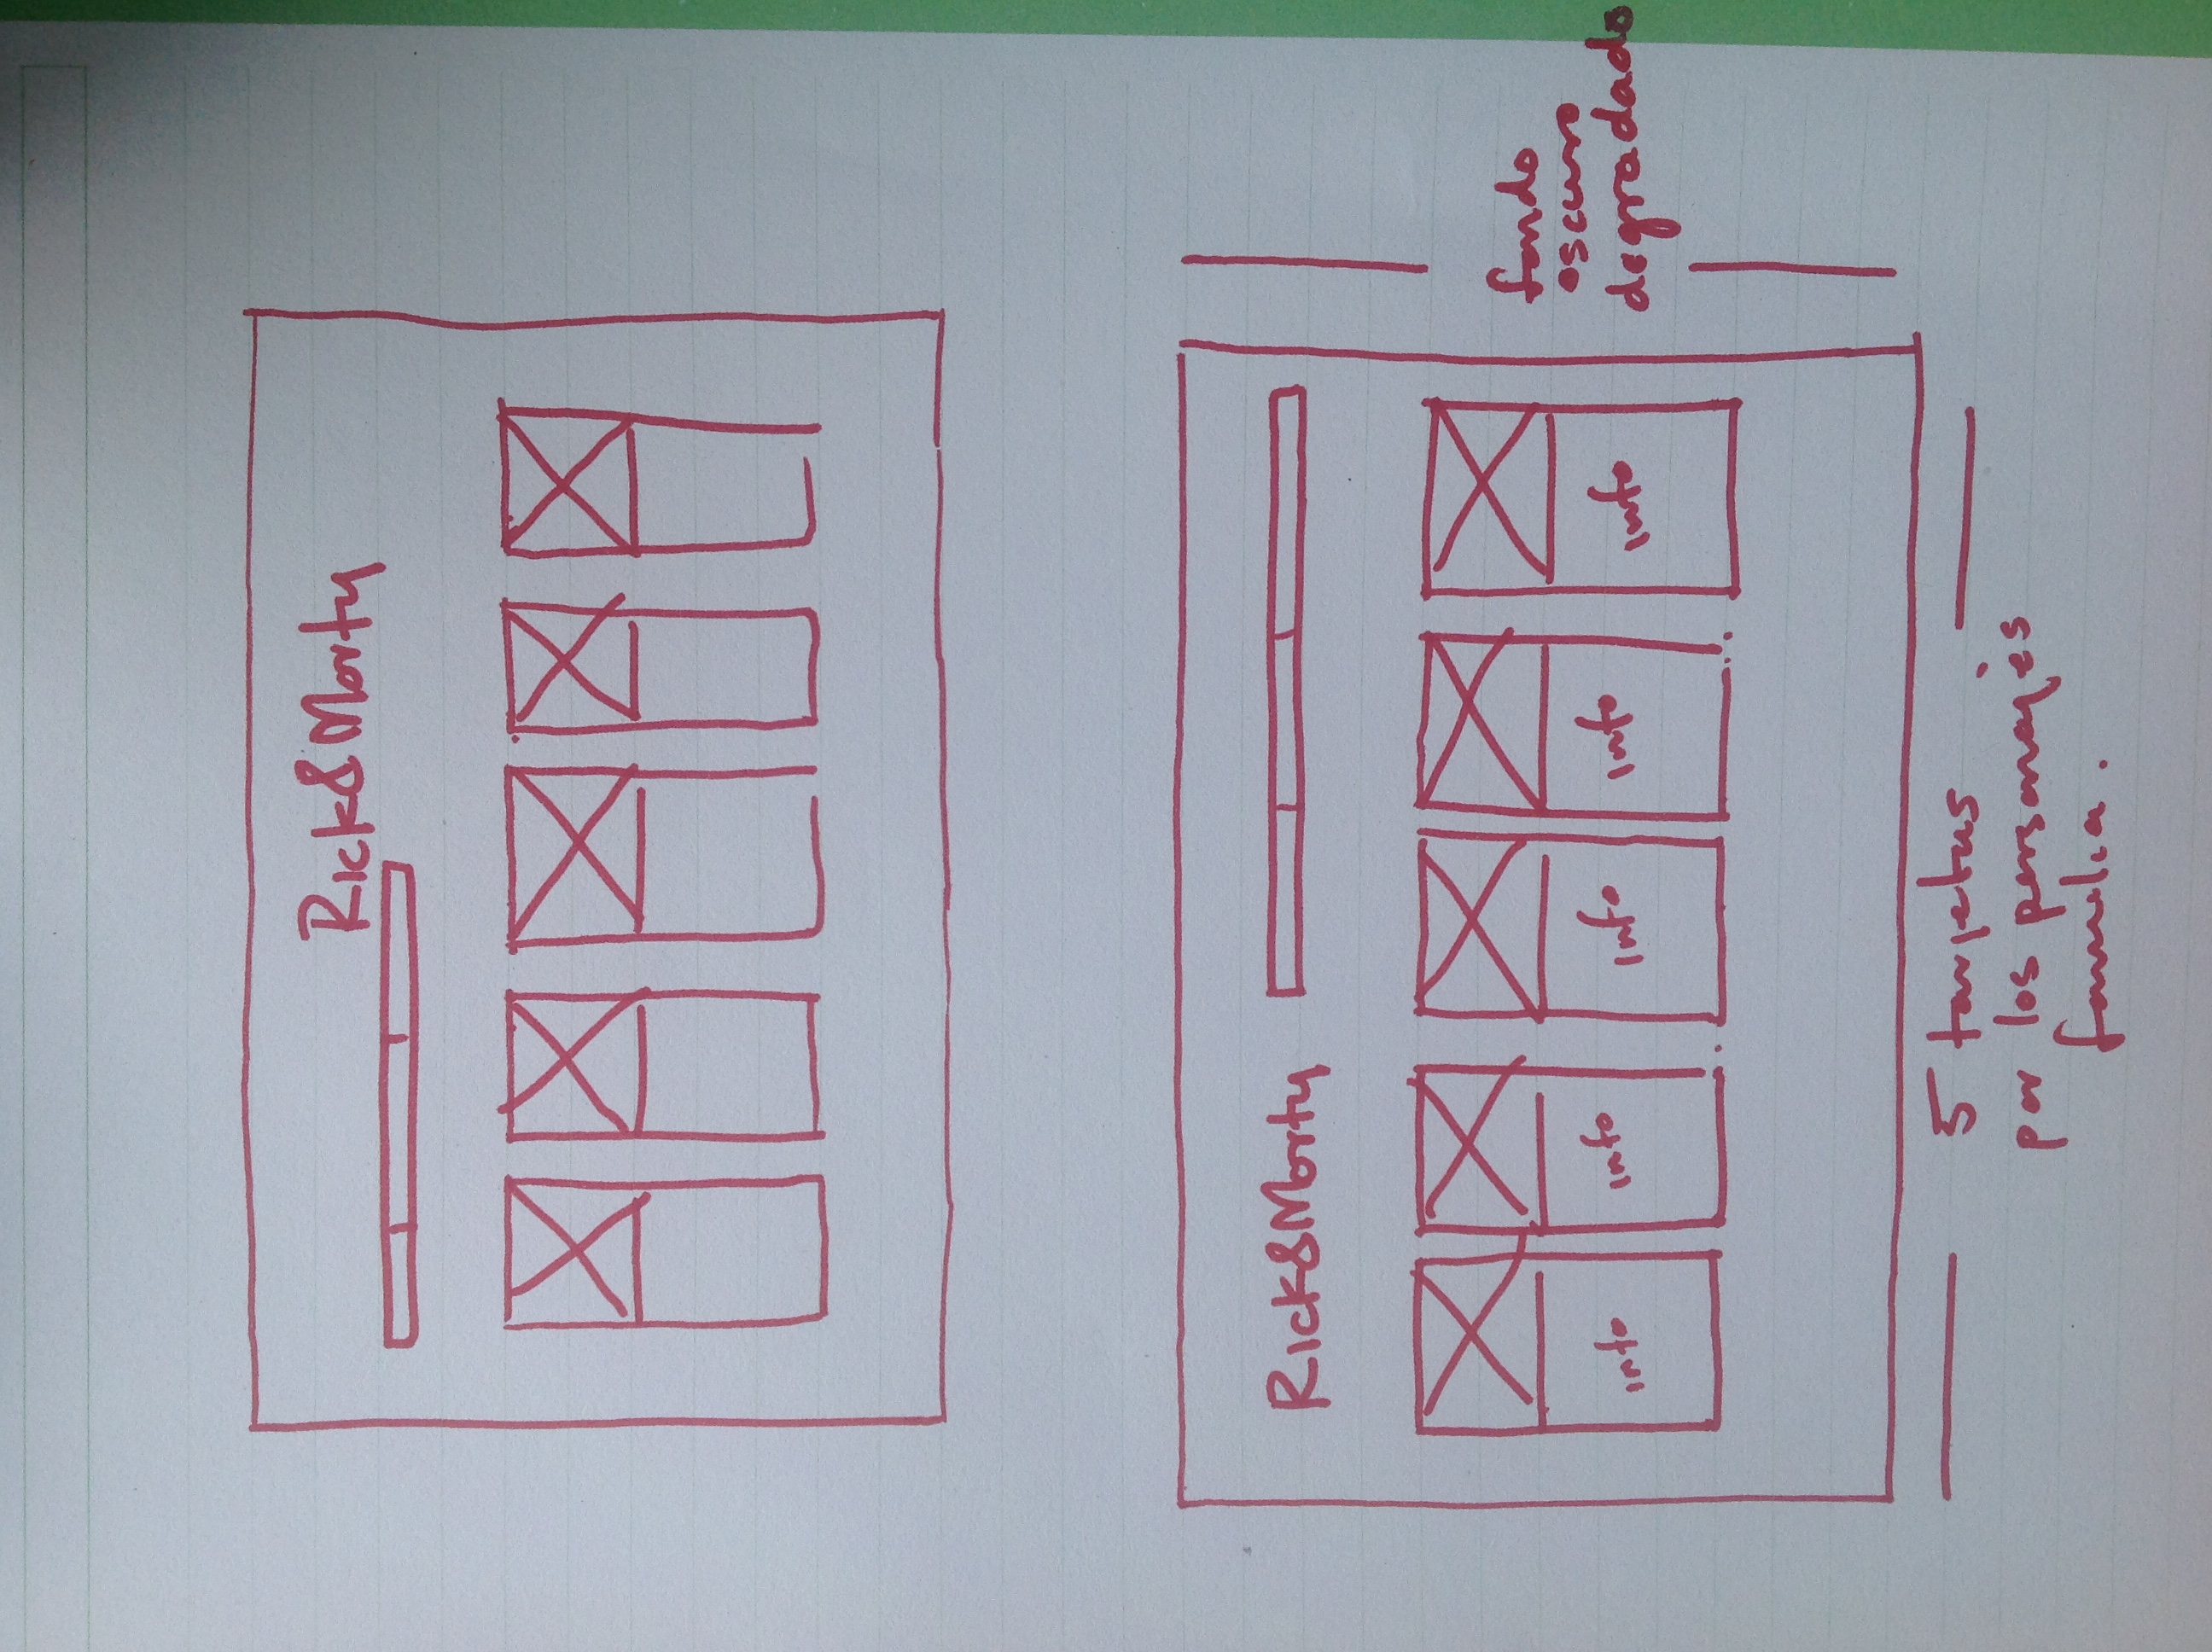 Rick&Morty
Rick&Morty
info
info
info
info
info
fondo
oscuro
degradado
5 tarjetas
por los personajes
familia.